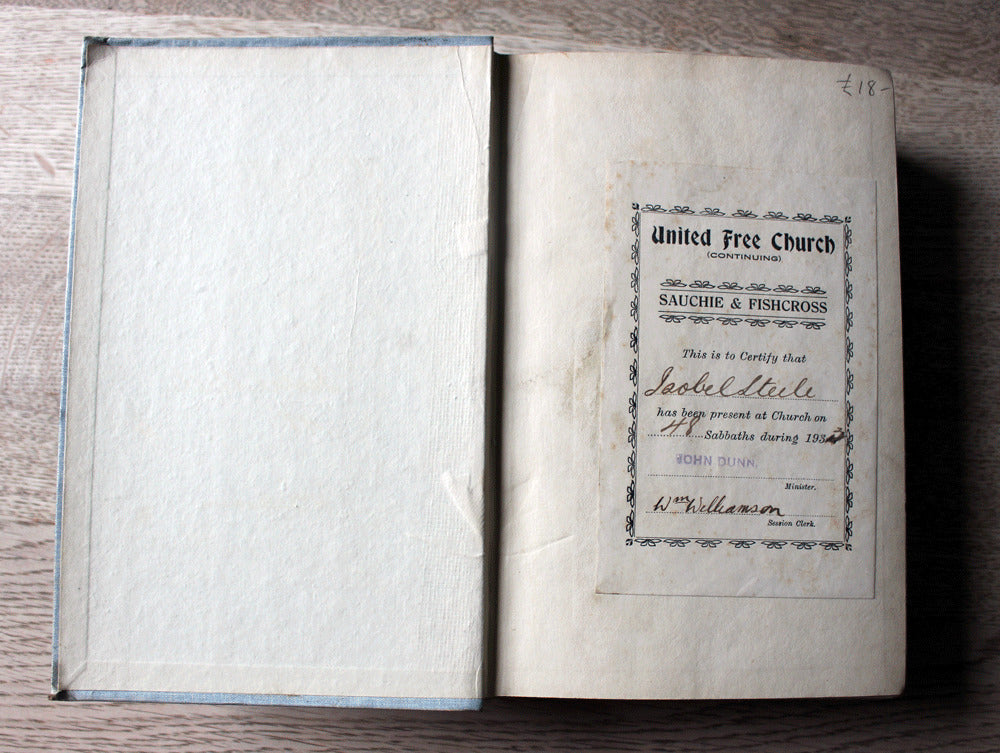 £18-
United Free Church
(CONTINUING)
SAUCHIE & FISHCROSS
This is to Certify that
Isobel Steele
has been present at Church on
48 Sabbaths during 193
JOHN DUNN,
Minister.
Wm Williamson
Session Clerk.